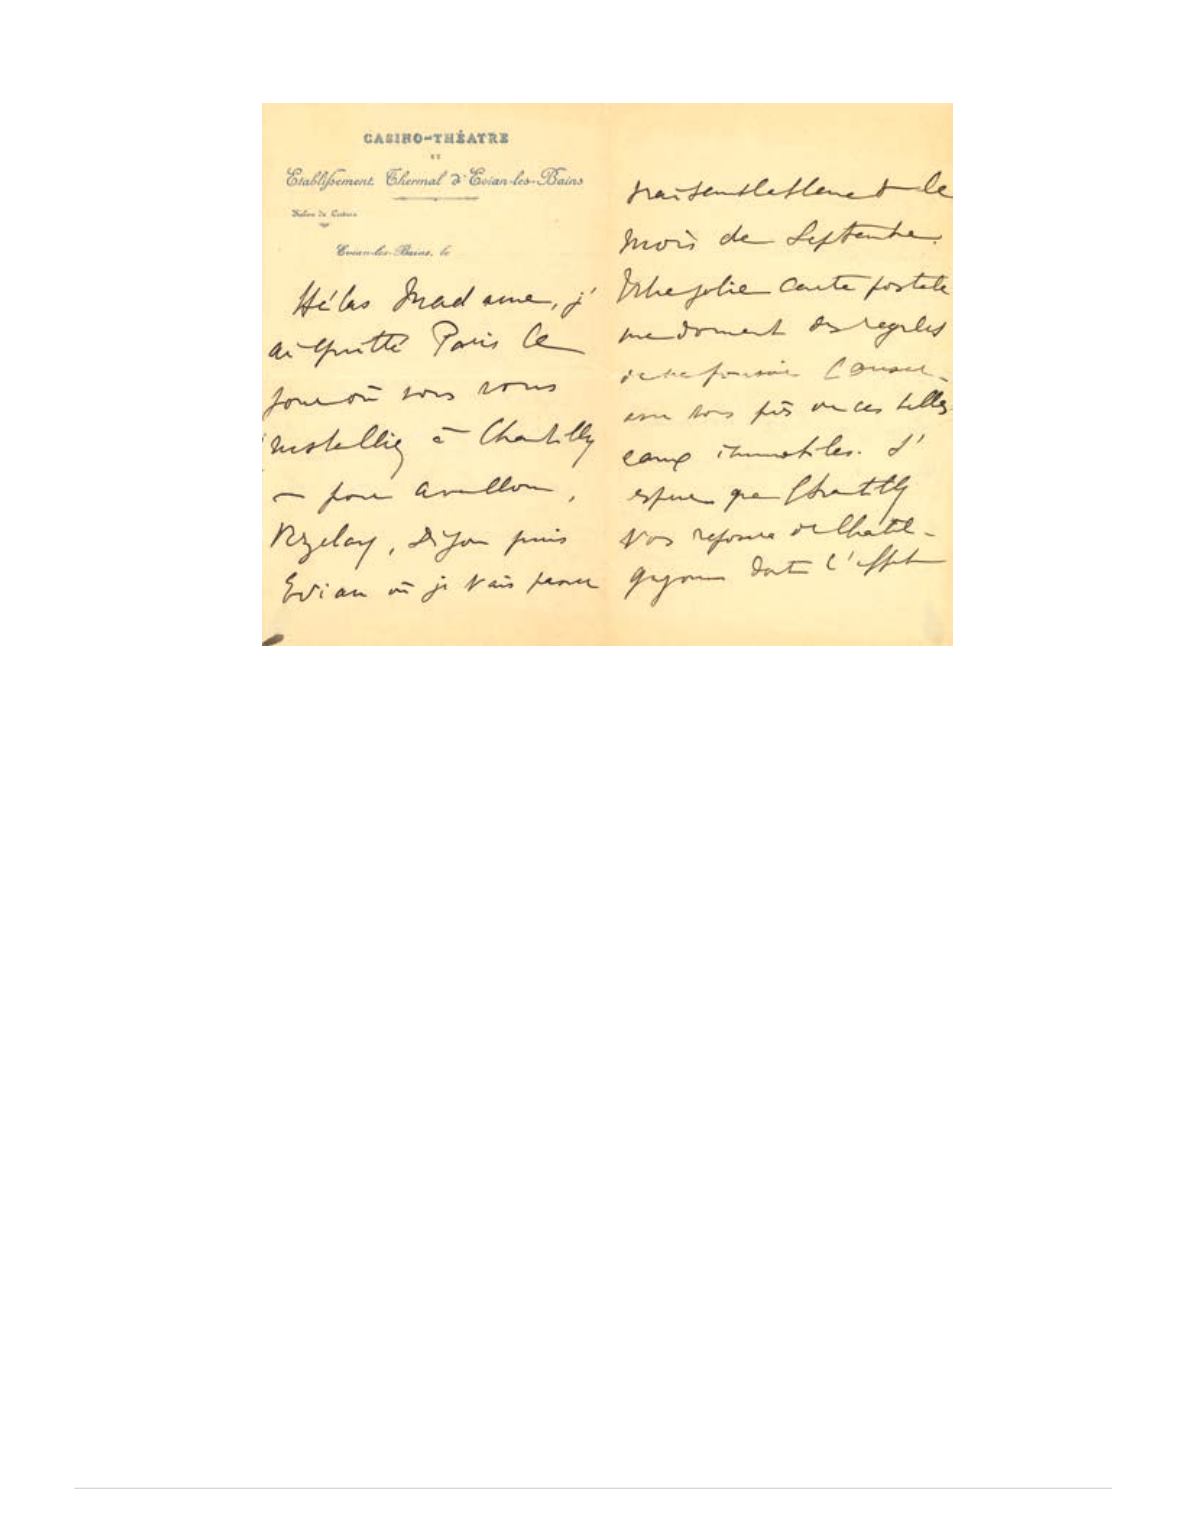 CASINO-THÉATRE
ET
Etablissement Thermal d'Evian-les-Bains
Salon de Lecture
Evian-les-Bains, le
Hélas Madame, j'
ai quitté Paris le
jour où vous vous
installiez à Chantilly
— pour Avallon,
Vezelay, Dijon puis
Evian où je vais passer
vraisemblablement le
mois de Septembre.
Votre jolie carte postale
me donnent des regrets
de ne pouvoir causer
avec vous près de ces belles
eaux immobiles. J'
espère que Chantilly
vous repose de Châtel-
guyon dont l'effet